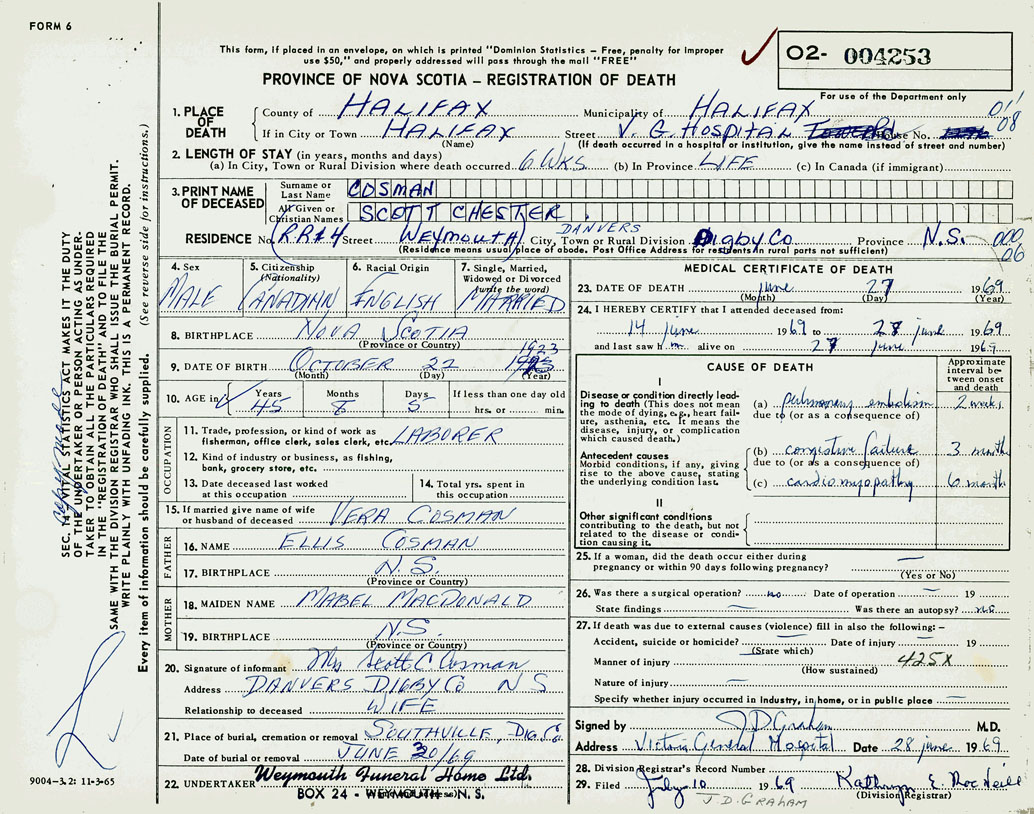 FORM 6
This form, if placed in an envelope, on which is printed "Dominion Statistics – Free, penalty for improper
use $50," and properly addressed will pass through the mail "FREE"
PROVINCE OF NOVA SCOTIA – REGISTRATION OF DEATH
O2- 004253
For use of the Department only
1. PLACE OF DEATH
County of HALIFAX Municipality of HALIFAX 01'
If in City or Town HALIFAX Street V. G. HOSPITAL House No. 08
(Name) (If death occurred in a hospital or institution, give the name instead of street and number)
2. LENGTH OF STAY (in years, months and days)
(a) In City, Town or Rural Division where death occurred 6 WKS (b) In Province LIFE (c) In Canada (if immigrant)
3. PRINT NAME OF DECEASED
Surname or Last Name COSMAN
All Given or Christian Names SCOTT CHESTER
DANVERS
RESIDENCE No. (RR#4 Street WEYMOUTH) City, Town or Rural Division DIGBY CO Province N.S. 000
(Residence means usual place of abode. Post Office Address for residents in rural parts not sufficient) 06
4. Sex MALE
5. Citizenship (Nationality) CANADIAN
6. Racial Origin ENGLISH
7. Single, Married, Widowed or Divorced (write the word) MARRIED
8. BIRTHPLACE NOVA SCOTIA
(Province or Country)
9. DATE OF BIRTH OCTOBER 22 1923
(Month) (Day) (Year)
10. AGE in Years 45 Months 8 Days 5 If less than one day old hrs. or min.
OCCUPATION
11. Trade, profession, or kind of work as fisherman, office clerk, sales clerk, etc. LABORER
12. Kind of industry or business, as fishing, bank, grocery store, etc.
13. Date deceased last worked at this occupation
14. Total yrs. spent in this occupation
15. If married give name of wife or husband of deceased VERA COSMAN
FATHER
16. NAME ELLIS COSMAN
17. BIRTHPLACE N.S.
(Province or Country)
MOTHER
18. MAIDEN NAME MABEL MACDONALD
19. BIRTHPLACE N.S.
(Province or Country)
20. Signature of informant Mrs Scott C Cosman
Address DANVERS DIGBY CO N S
Relationship to deceased WIFE
21. Place of burial, cremation or removal SOUTHVILLE, DIG. Co
Date of burial or removal JUNE 30/69
22. UNDERTAKER Weymouth Funeral Home Ltd.
BOX 24 - WEYMOUTH - N. S.
MEDICAL CERTIFICATE OF DEATH
23. DATE OF DEATH June 27 1969
(Month) (Day) (Year)
24. I HEREBY CERTIFY that I attended deceased from:
14 June 1969 to 27 June 1969
and last saw h m alive on 27 June 1969
CAUSE OF DEATH
Approximate interval between onset and death
I
Disease or condition directly leading to death (This does not mean the mode of dying, e.g., heart failure, asthenia, etc. It means the disease, injury, or complication which caused death.)
(a) pulmonary embolism 2 weeks
due to (or as a consequence of)
Antecedent causes
Morbid conditions, if any, giving rise to the above cause, stating the underlying condition last.
(b) congestive failure 3 months
due to (or as a consequence of)
(c) cardiomyopathy 6 months
II
Other significant conditions contributing to the death, but not related to the disease or condition causing it.
25. If a woman, did the death occur either during pregnancy or within 90 days following pregnancy? —
(Yes or No)
26. Was there a surgical operation? no Date of operation — 19
State findings — Was there an autopsy? no
27. If death was due to external causes (violence) fill in also the following: –
Accident, suicide or homicide? — Date of injury — 19
(State which)
Manner of injury — 425X
(How sustained)
Nature of injury —
Specify whether injury occurred in industry, in home, or in public place —
Signed by J D Graham M.D.
Address Victoria General Hospital Date 28 June 1969
28. Division Registrar's Record Number
29. Filed July 10 1969 Kathryn E.
J. D. GRAHAM (Division Registrar)
SEC. 14 VITAL STATISTICS ACT MAKES IT THE DUTY
OF THE UNDERTAKER OR PERSON ACTING AS UNDER-
TAKER TO OBTAIN ALL THE PARTICULARS REQUIRED
IN THE "REGISTRATION OF DEATH" AND TO FILE THE
SAME WITH THE DIVISION REGISTRAR WHO SHALL ISSUE THE BURIAL PERMIT.
WRITE PLAINLY WITH UNFADING INK. THIS IS A PERMANENT RECORD.
Every item of information should be carefully supplied. (See reverse side for instructions.)
9004-3.2: 11-3-65